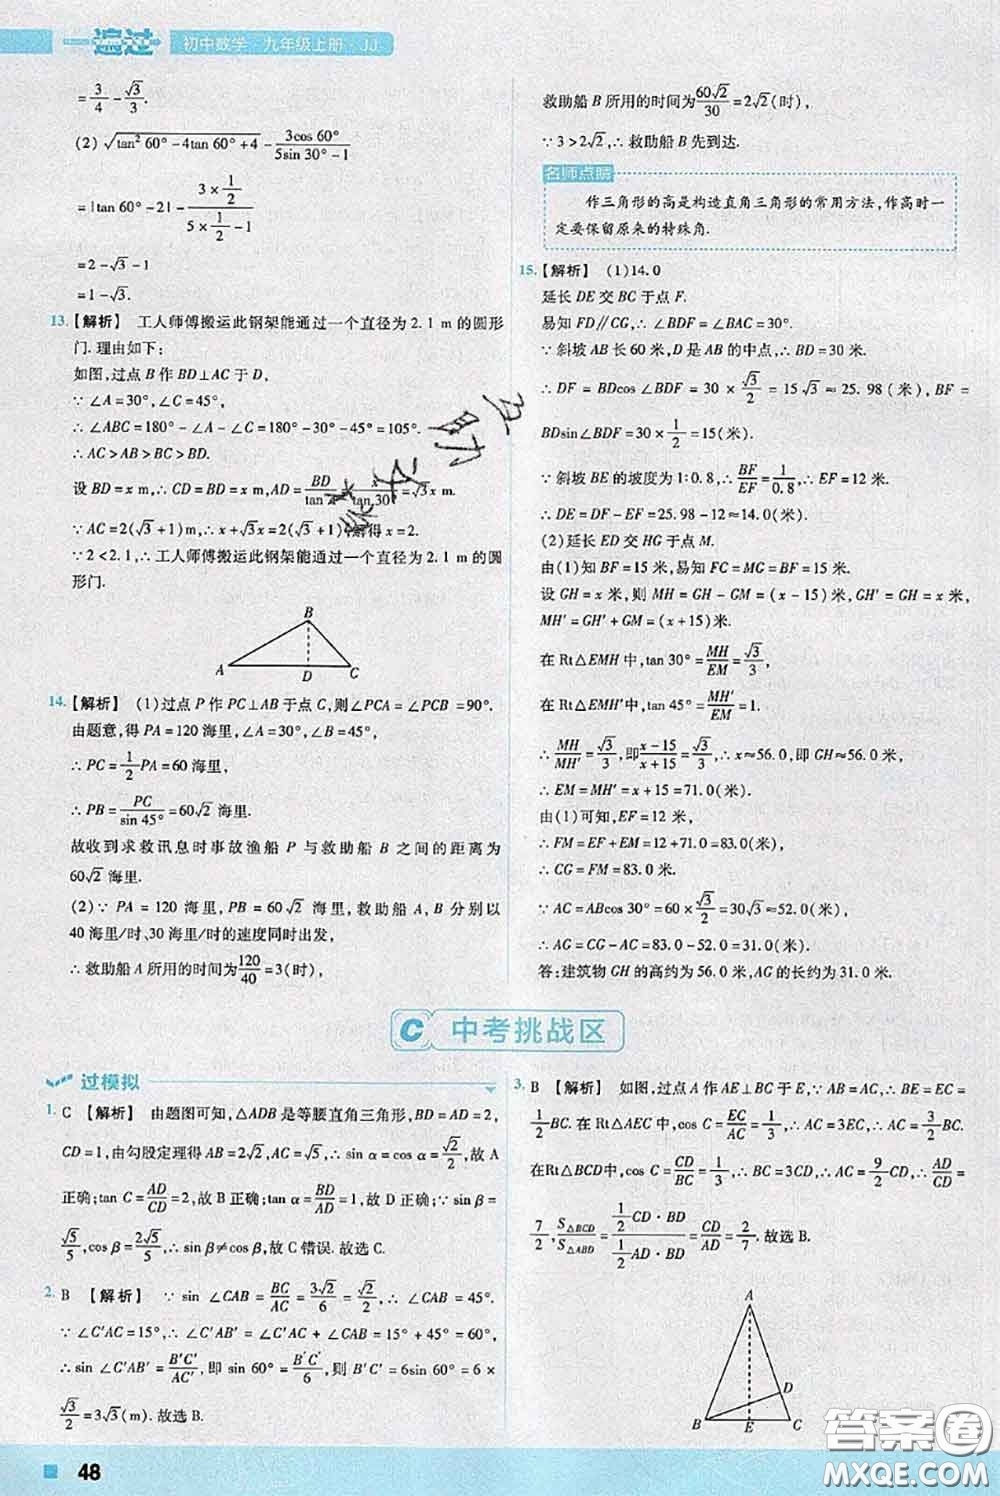 一遍过 初中数学·九年级上册·JJ
=3/4-√3/3.
(2) √(tan² 60°-4tan 60°+4) - 3cos 60°/(5sin 30°-1)
=|tan 60°-2|-(3×1/2)/(5×1/2-1)
=2-√3-1
=1-√3.
13. 【解析】 工人师傅搬运此钢架能通过一个直径为2.1 m的圆形
门.理由如下:
如图,过点B作BD⊥AC于D,
∵∠A=30°,∠C=45°,
∴∠ABC=180°-∠A-∠C=180°-30°-45°=105°.
∴AC>AB>BC>BD.
设BD=x m,∴CD=BD=x m,AD=BD/tan =x/tan 30°=√3x m.
∵AC=2(√3+1)m,∴x+√3x=2(√3+1),解得x=2.
∵2<2.1,∴工人师傅搬运此钢架能通过一个直径为2.1 m的圆
形门.
B
A D C
14. 【解析】 (1)过点P作PC⊥AB于点C,则∠PCA=∠PCB=90°.
由题意,得PA=120海里,∠A=30°,∠B=45°,
∴PC=1/2PA=60海里,
∴PB=PC/sin 45°=60√2 海里.
故收到求救讯息时事故渔船P与救助船B之间的距离为
60√2 海里.
(2)∵PA=120海里,PB=60√2 海里,救助船A,B分别以
40海里/时、30海里/时的速度同时出发,
∴救助船A所用的时间为120/40=3(时),
救助船B所用的时间为60√2/30=2√2(时),
∵3>2√2,∴救助船B先到达.
名师点睛
作三角形的高是构造直角三角形的常用方法,作高时一
定要保留原来的特殊角.
15. 【解析】 (1)14.0
延长DE交BC于点F.
易知FD∥CG,∴∠BDF=∠BAC=30°.
∵斜坡AB长60米,D是AB的中点,∴BD=30米.
∴DF=BDcos∠BDF=30×√3/2=15√3≈25.98(米),BF=
BDsin∠BDF=30×1/2=15(米).
∵斜坡BE的坡度为1∶0.8,∴BF/EF=1/0.8,∴EF=12米.
∴DE=DF-EF=25.98-12≈14.0(米).
(2)延长ED交HG于点M.
由(1)知BF=15米,易知FC=MG=BF=15米.
设GH=x米,则MH=GH-GM=(x-15)米,GH'=GH=x米,
MH'=GH'+GM=(x+15)米.
在Rt△EMH中,tan 30°=MH/EM=√3/3,
在Rt△EMH'中,tan 45°=MH'/EM=1.
∴MH/MH'=√3/3,即(x-15)/(x+15)=√3/3,∴x≈56.0,即GH≈56.0米,
∴EM=MH'=x+15≈71.0(米).
由(1)可知,EF=12米,
∴FM=EF+EM=12+71.0=83.0(米).
∴CG=FM=83.0米.
∵AC=ABcos30°=60×√3/2=30√3≈52.0(米),
∴AG=CG-AC=83.0-52.0=31.0(米).
答:建筑物GH的高约为56.0米,AG的长约为31.0米.
C 中考挑战区
过模拟
1. C 【解析】 由题图可知,△ADB是等腰直角三角形,BD=AD=2,
CD=1,由勾股定理得AB=2√2,AC=√5,∴sin α=cos α=√2/2,故A
正确;tan C=AD/CD=2,故B正确;tan α=BD/AD=1,故D正确;∵sin β=
√5/5,cos β=2√5/5,∴sin β≠cos β,故C错误.故选C.
2. B 【解析】 ∵sin∠CAB=BC/AC=3√2/6=√2/2,∴∠CAB=45°.
∵∠C'AC=15°,∴∠C'AB'=∠C'AC+∠CAB=15°+45°=60°.
∴sin∠C'AB'=B'C'/AC',即sin 60°=B'C'/6,则B'C'=6sin 60°=6×
√3/2=3√3(m).故选B.
3. B 【解析】 如图,过点A作AE⊥BC于E,∵AB=AC,∴BE=EC=
1/2BC.在Rt△AEC中,cos C=EC/AC=1/3,∴AC=3EC,∴AC=3/2BC.
在Rt△BCD中,cos C=CD/BC=1/3,∴BC=3CD,∴AC=9/2CD,∴AD/CD=
7/2,S△BCD/S△ABD=(1/2CD·BD)/(1/2AD·BD)=CD/AD=2/7.故选B.
A
D
B E C
48
答案圈
MXQE.COM